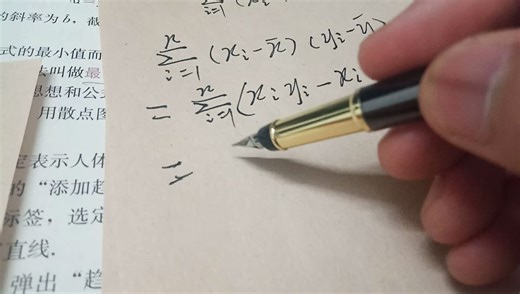 的斜率为 b. 截
式的最小值而
法叫做最
思想和公
用散点图
定表示人体
的“添加趋
标签，选定
直线.
弹出“趋
n
Σ (xᵢ-x̄)(yᵢ-ȳ)
i=1
n
= Σ (xᵢyᵢ-xᵢ
i=1
=